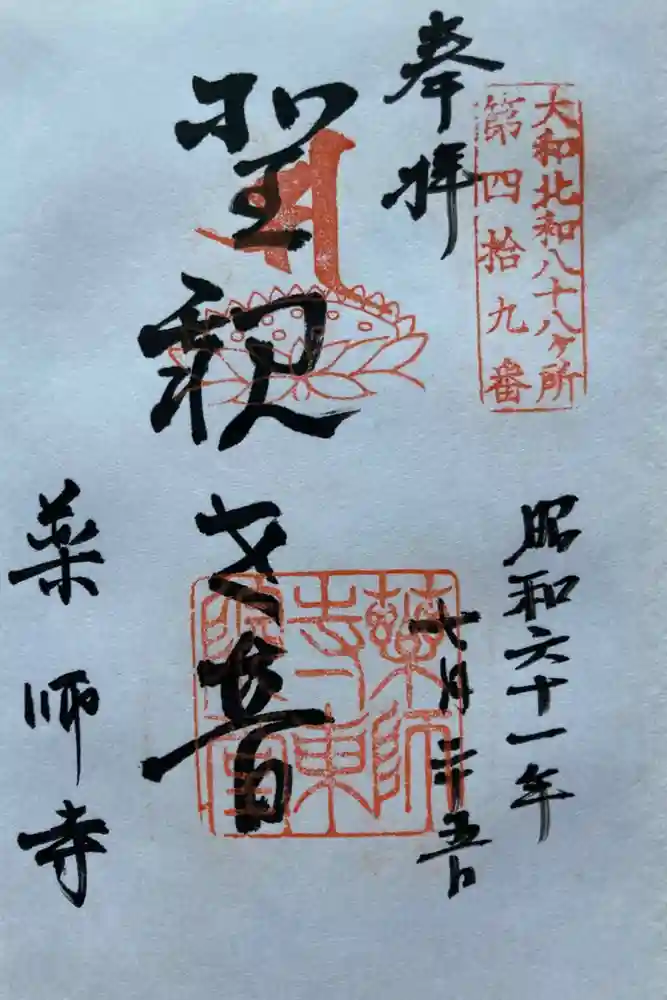 大和北和八十八ヶ所
第四拾九番
奉拝
昭和六十一年
七月二十五日
聖観世音
薬師寺東院堂
薬師寺